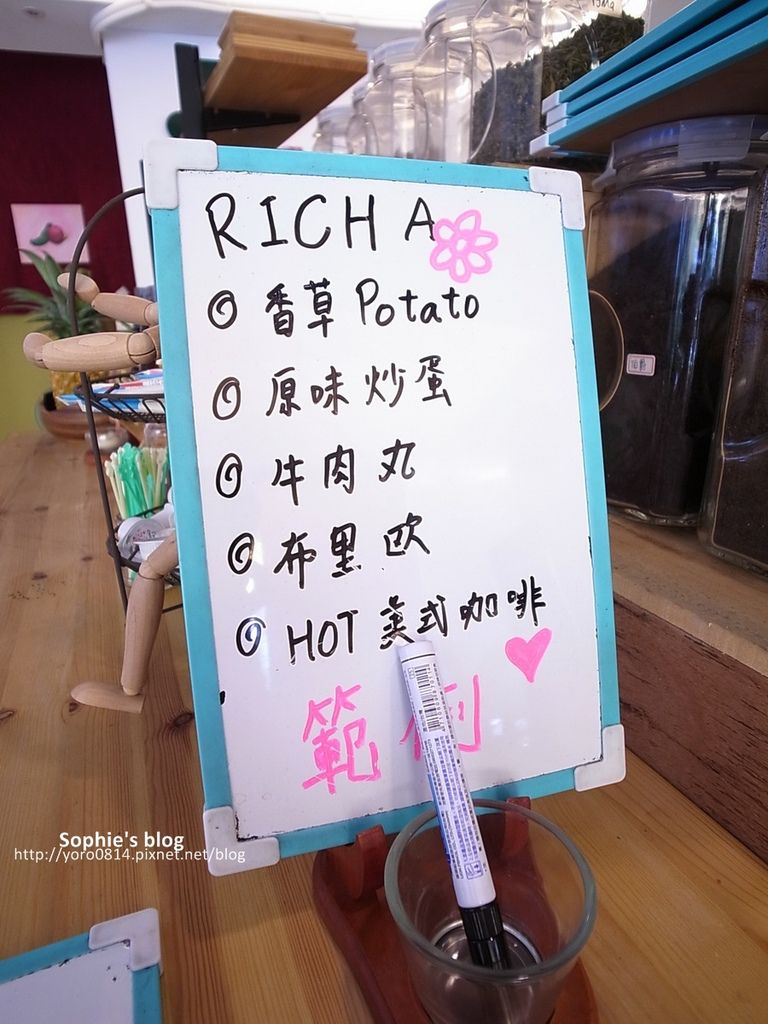 RICH A
◎ 香草 Potato
◎ 原味炒蛋
◎ 牛肉丸
◎ 布里欧
◎ HOT 美式咖啡
範例
Sophie's blog
http://yoro0814.pixnet.net/blog